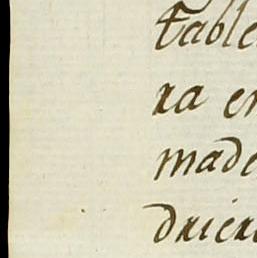 table
ra en
made
drier